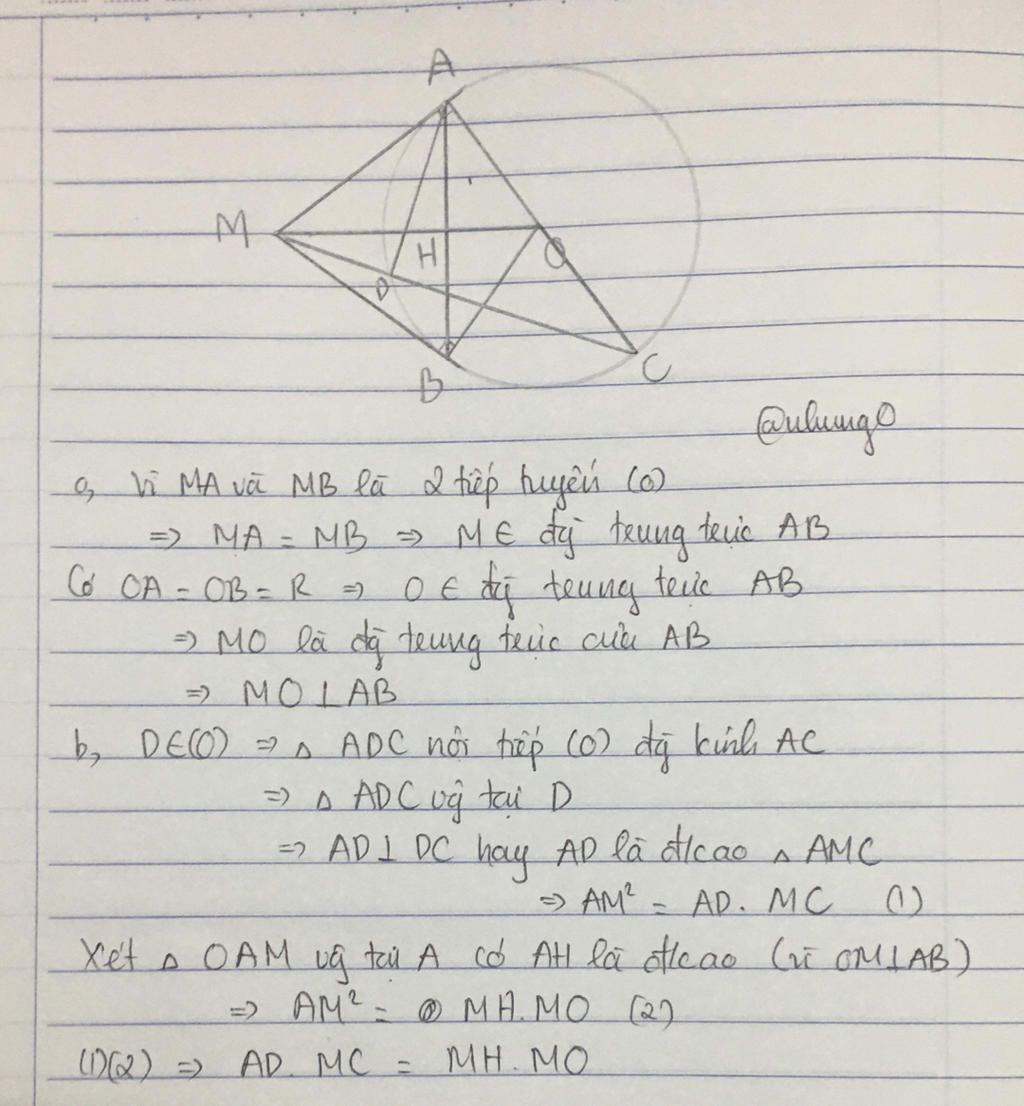 A
M
H
O
D
B
C
@nhung0
a, Vì MA và MB là 2 tiếp tuyến (O)
=> MA = MB => M ∈ đg trung trực AB
Có OA = OB = R => O ∈ đg trung trực AB
=> MO là đg trung trực của AB
=> MO ⊥ AB
b, D∈(O) => △ ADC nội tiếp (O) đg kính AC
=> △ ADC vg tại D
=> AD ⊥ DC hay AD là đ/cao △ AMC
=> AM² = AD. MC (1)
Xét △ OAM vg tại A có AH là đ/cao (vì OM⊥AB)
=> AM² = MH.MO (2)
(1)(2) => AD. MC = MH.MO